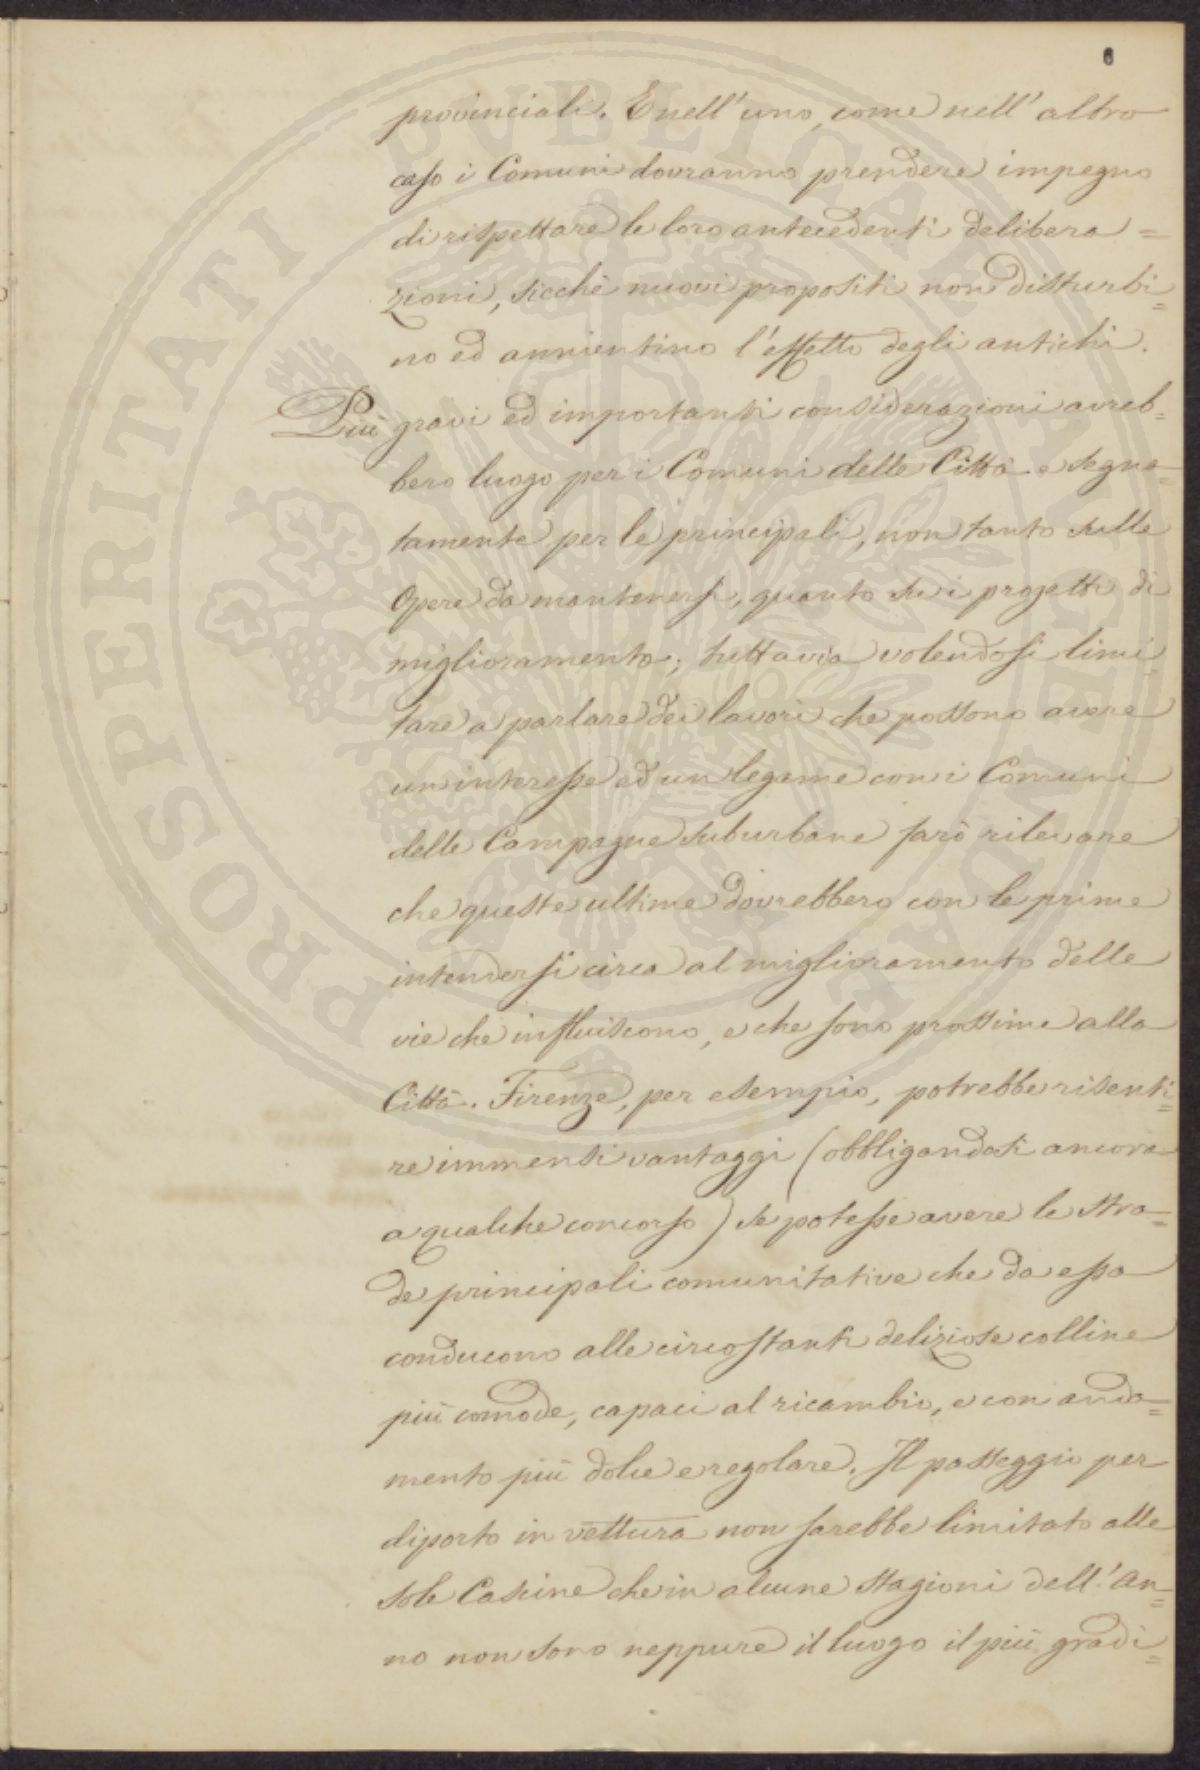 6
provinciali. E nell'uno, come nell'altro
caso i Comuni dovranno prendere impegno
di rispettare le loro antecedenti delibera=
zioni, sicchè nuovi propositi non disturbi=
no ed annientino l'effetto degli antichi.
Più gravi ed importanti considerazioni avreb=
bero luogo per i Comuni delle Città e segna=
tamente per le principali, non tanto sulle
Opere da mantenersi, quanto su i progetti di
miglioramento; tuttavia volendosi limi=
tare a parlare dei lavori che possono avere
un interesse ed un legame con i Comuni
delle Campagne suburbane farò rilevare
che queste ultime dovrebbero con le prime
intendersi circa al miglioramento delle
vie che influiscono, e che sono prossime alla
Città. Firenze, per esempio, potrebbe risenti=
re immensi vantaggi (obbligandosi ancora
a qualche concorso) se potesse avere le stra=
de principali comunitative che da essa
conducono alle circostanti deliziose colline
più comode, capaci al ricambio, e con anda=
mento più dolce e regolare. Il passeggio per
diporto in vettura non sarebbe limitato alle
sole Cascine che in alcune stagioni dell'An=
no non sono neppure il luogo il più gradi=
PROSPERITATI PUBLICAE AUGENDAE